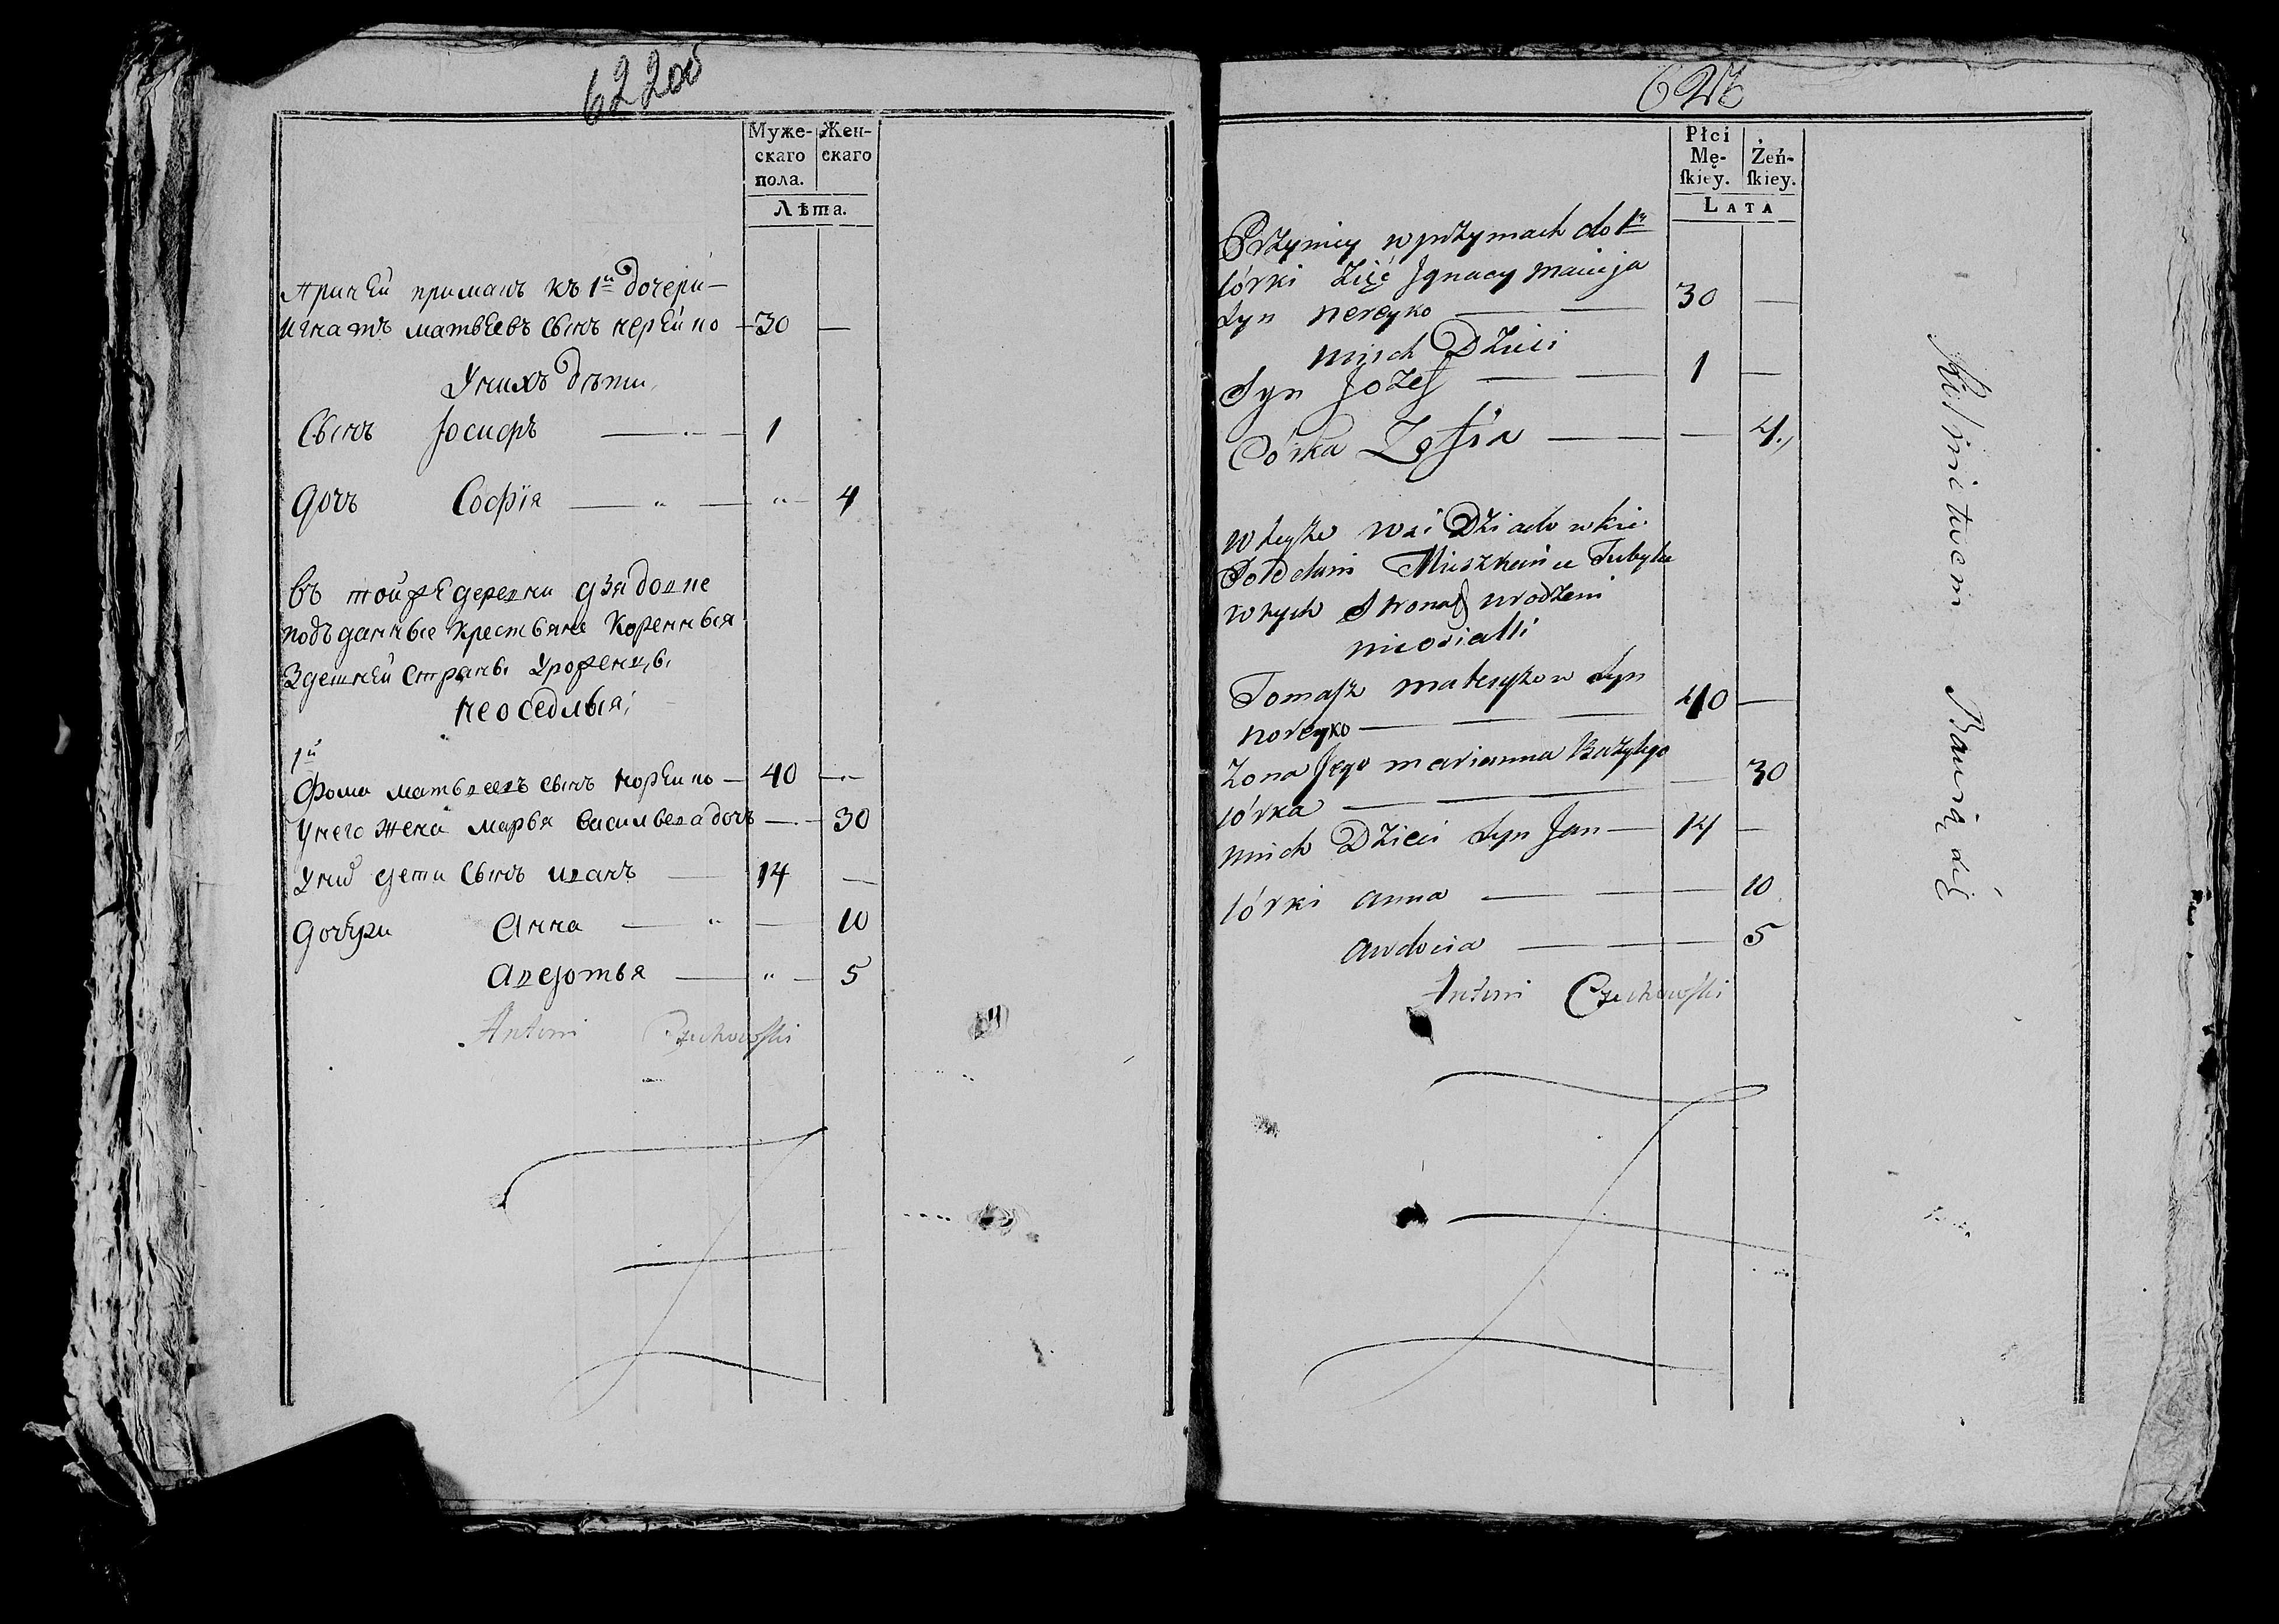 622 об
Муже-
скаго
пола.
Жен-
скаго
Лѣта.
къ 1й дочери
Игнатъ матвѣевъ сынъ норѣйко 30
У нихъ дѣти
Сынъ Іосифъ 1
Дочь Софія 4
въ той же деревни дзядовке
подъданные крестьяне коренныя
Здешнѣй страны Уроженцы
неоседлыя
1й
Фома матвеевъ сынъ норѣйко 40
У него жена марья васильева дочь 30
дети сынъ иванъ 14
дочѣри Анна 10
Авдотья 5
Antoni Czechowski
623
Płci
Mę-
skiey.
Żeń-
skiey.
LATA
w przymach do 1y
córki Zięć Jgnacy macieja
Syn noreyko 30
u nich Dzieci
Syn Jozef 1
Córka Zofia 4
w teyże wsi Dziadowkie
Poddani Mieszkańce Tubylce
w tych Stronach urodzeni
nieosiadli
Tomasz mateuszow Syn
noreyko 40
Zona Jego marianna Bazylego
córka 30
u nich Dzieci Syn Jan 14
córki anna 10
audocia 5
Antoni Czechowski